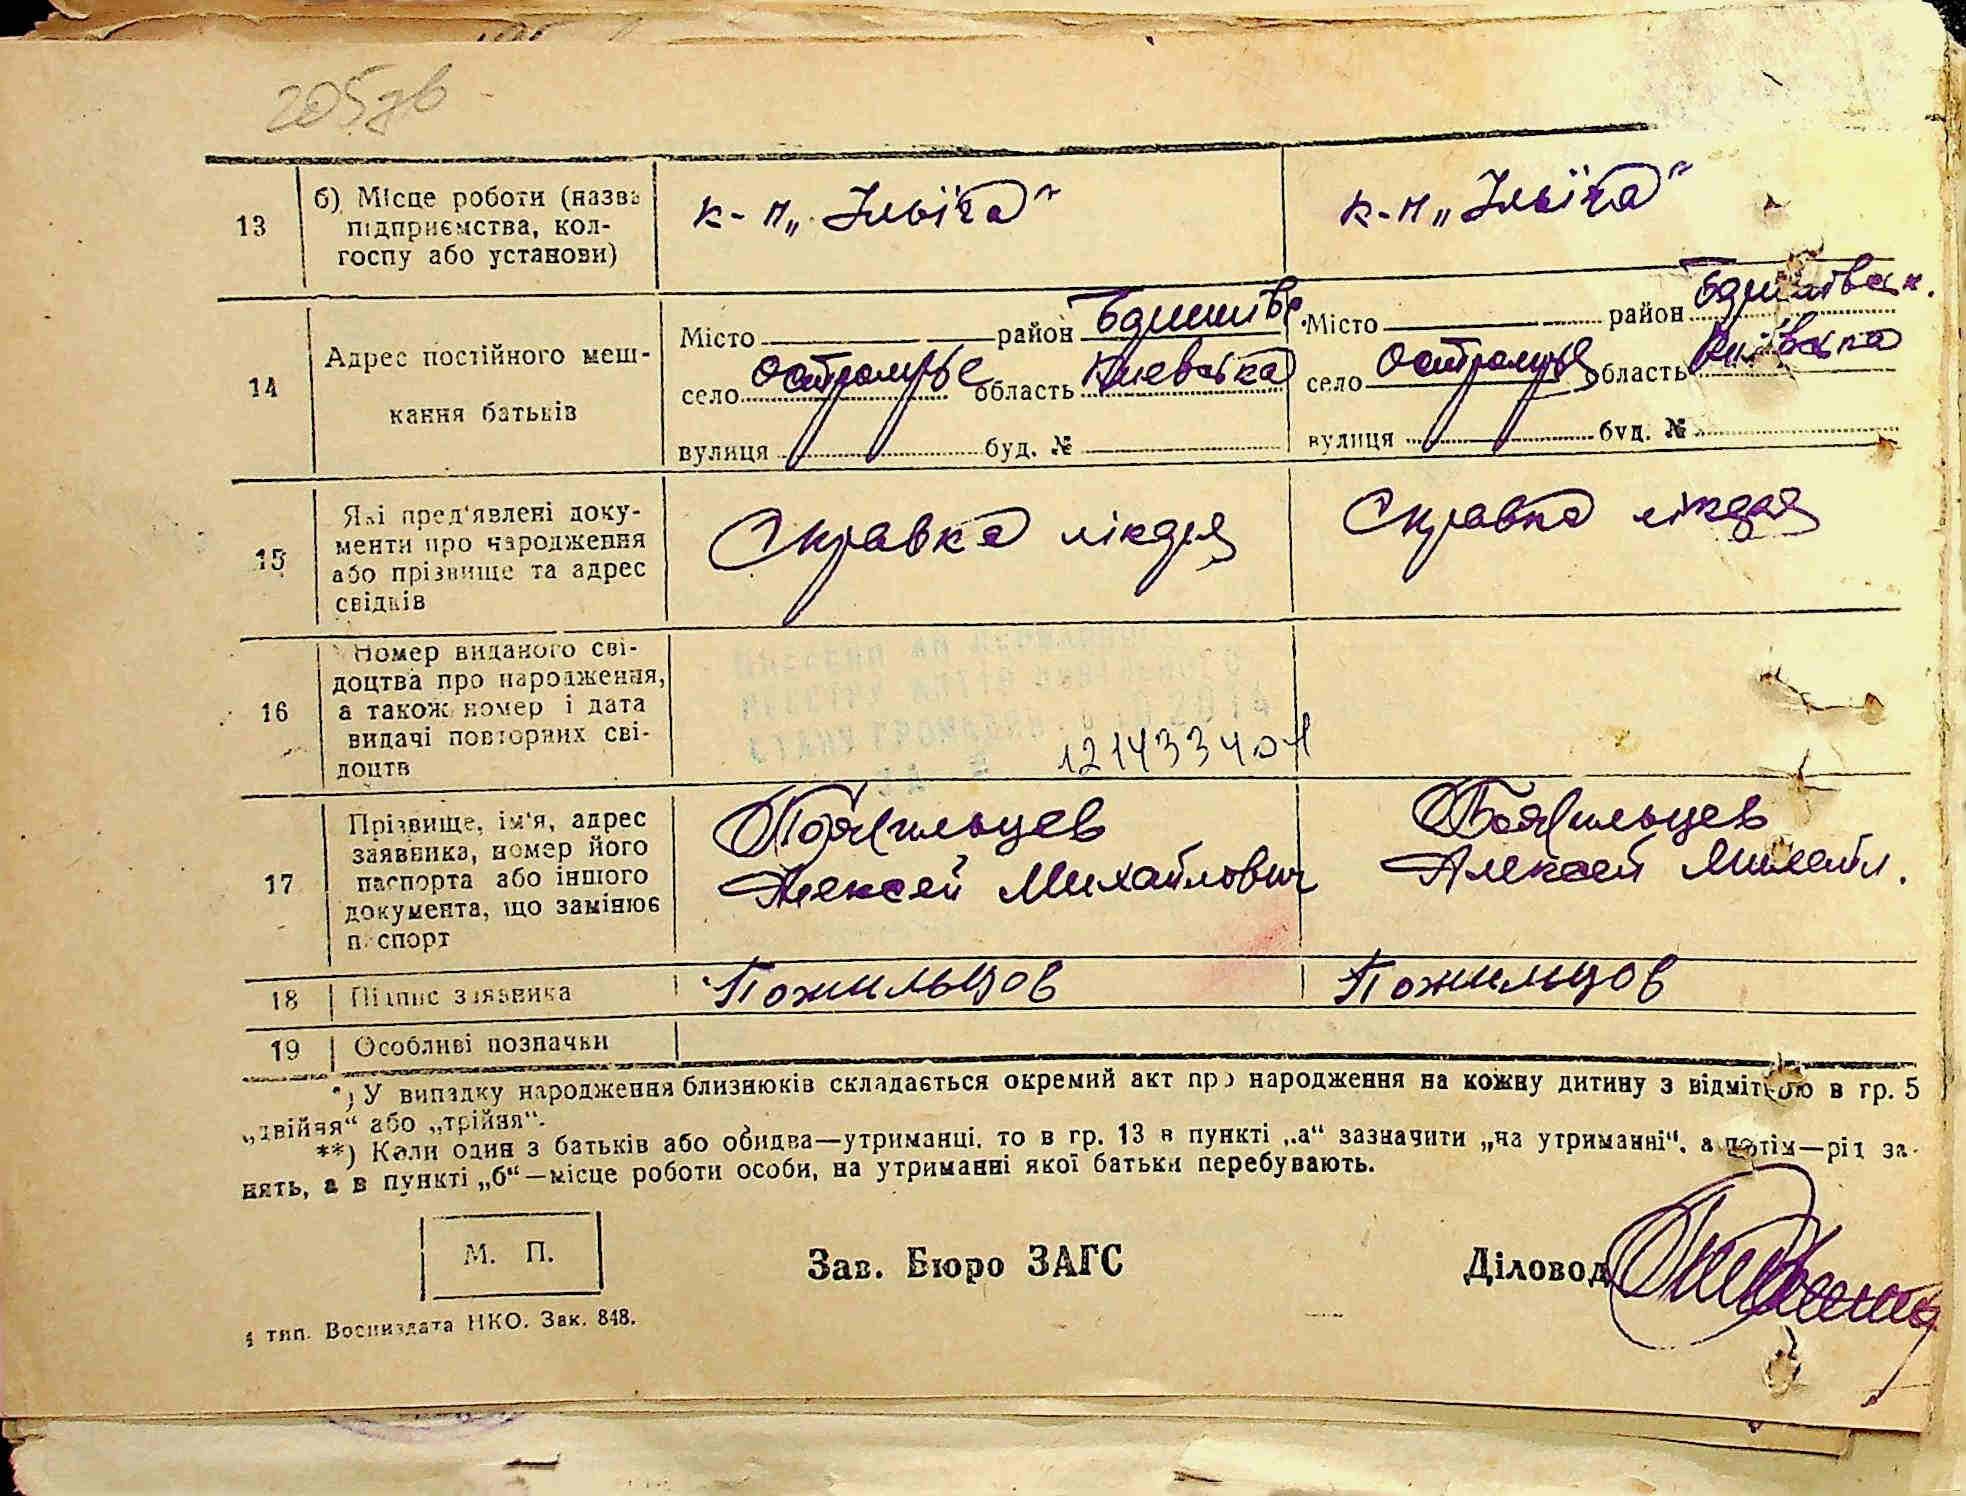 205зв
13
б) Місце роботи (назва
підприємства, кол-
госпу або установи)
к-п „Ільїча"
к-п „Ільїча"
14
Адрес постійного меш-
кання батьків
Місто район
село Остромирье область Киевська
вулиця буд. №
Місто район
село область Київська
вулиця буд. №
15
Які пред'явлені доку-
менти про народження
або прізвище та адрес
свідків
Справка лікдел
Справка лікдел
16
Номер виданого сві-
доцтва про народження,
а також номер і дата
видачі повторних сві-
доцтв
СТАНУ ГРОМАДЯН 2014
ЗА №
12143340
17
Прізвище, ім'я, адрес
заявника, номер його
паспорта або іншого
документа, що замінює
п спорт
Пожильцев
Алексей Михайлович
Пожильцев
Алексей Михайл.
18
Підпис заявника
Пожильцов
Пожильцов
19
Особливі позначки
*) У випадку народження близнюків складається окремий акт про народження на кожну дитину з відміткою в гр. 5
„двійня“ або „трійня“.
**) Коли один з батьків або обидва—утриманці, то в гр. 13 в пункті „а“ зазначити „на утриманні“, а потім—рід за-
нять, а в пункті „б“—місце роботи особи, на утриманні якої батьки перебувають.
М. П.
Зав. Бюро ЗАГС
Діловод
4 тип. Воениздата НКО. Зак. 848.